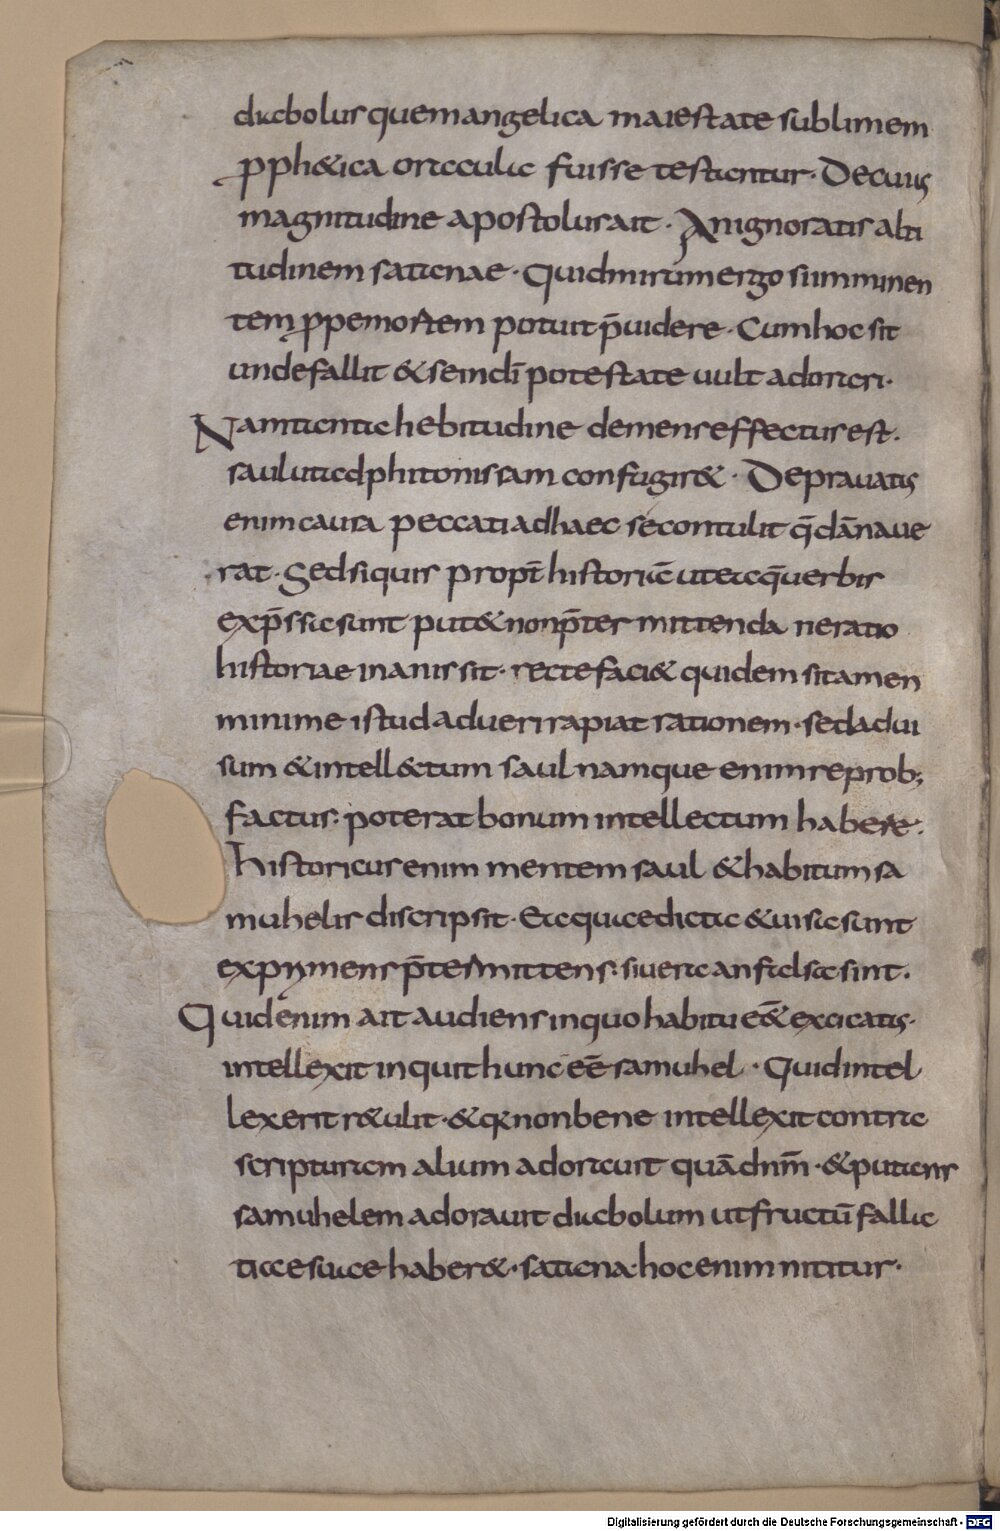 diabolus quem angelica maiestate sublimem
pph&ica oracula fuisse testantur. De cuius
magnitudine apostolus ait. An ignoratis alti
tudinem satanae. Quid mirum ergo si imminen
tem ppe mortem potuit p̄uidere. Cum hoc sit
unde fallit & se in dī potestate uult adorari.
Nam tanta hebitudine demens effectus est.
saul ut ad phitonissam confugir&. Deprauatis
enim causa peccati ad haec se contulit q̄ dānaue
rat. Sed si quis propt̄ historiā ut ea q̄ uerbis
exp̄ssa sunt put& non p̄termittenda ne ratio
historiae inanis sit. recte faci& quidem si tamen
minime istud ad ueri rapiat rationem. sed ad ui
sum & intell&tum saul namque enim reprob;
factus. poterat bonum intellectum habere.
historicus enim mentem saul & habitum sa
muhelis discripsit. Ea quae dicta & uisa sunt
exprymens p̄termittens. si uera an falsa sint.
Quid enim ait audiens in quo habitu eē& excicatis.
intellexit inquit hunc eē samuhel. Quid intel
lexerit r&ulit. & q non bene intellexit contra
scripturam alium adorauit quā dnm̄. & putans
samuhelem adorauit diabolum ut fructū falla
tiae suae haber& satana. hoc enim nititur.
Digitalisierung gefördert durch die Deutsche Forschungsgemeinschaft - DFG